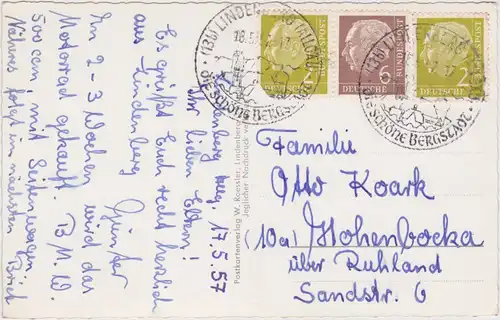 Lindenberg Allg. 17.5.57
Ihr lieben Eltern!
Es grüßt Euch recht herzlich
aus Lindenberg
Günter
In 2-3 Wochen wird das
Motorrad gekauft. B.M.W.
500 ccm, mit Seitenwagen.
Näheres folgt im nächsten Brief
Postkartenverlag W. Roessler, Lindenberg
Jeglicher Nachdruck
(13b) LINDENBERG (ALLGÄU)
die schöne Bergstadt
2
DEUTSCHE BUNDESPOST
6
DEUTSCHE BUNDESPOST
2
DEUTSCHE BUNDESPOST
(13b) LINDENBERG
die schöne Bergstadt
Familie
Otto Koark
10a) Hohenbocka
über Ruhland
Sandstr. 6